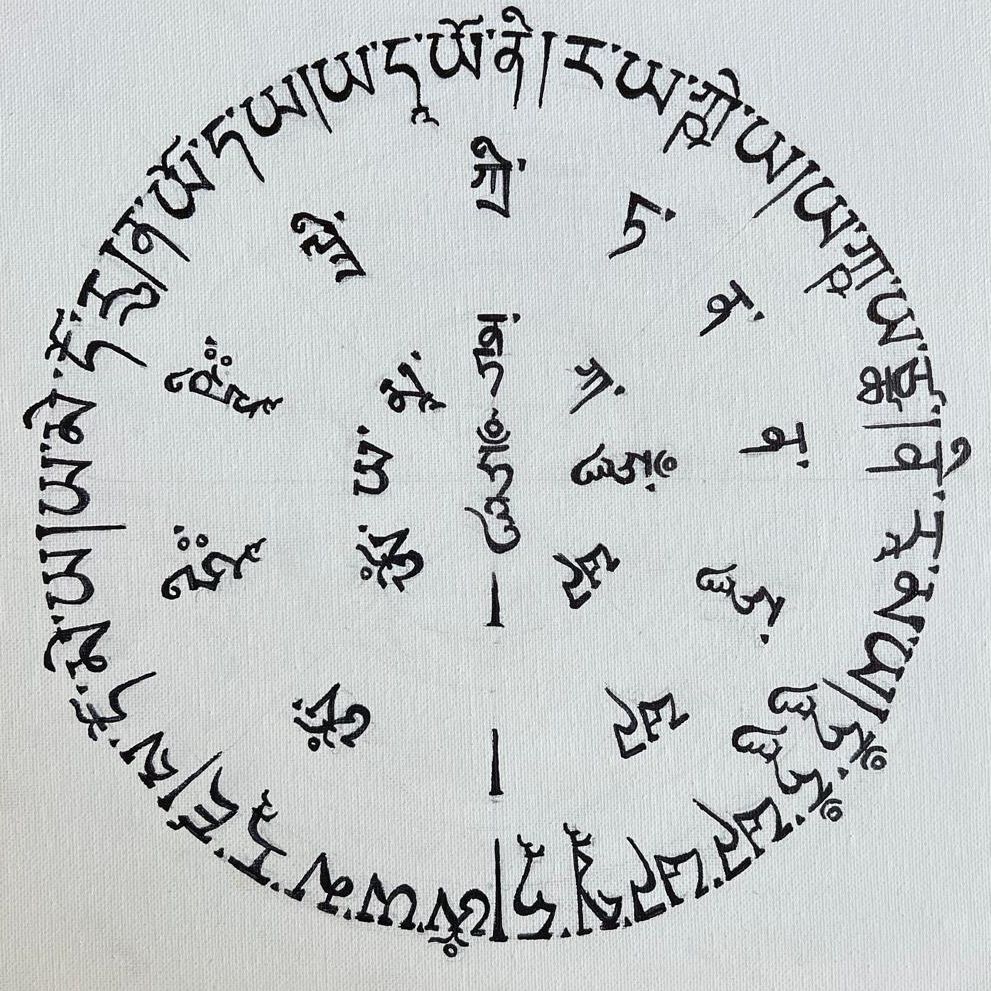 ཨོཾ་ཡ་མ་རཱ་ཛ།ས་དོ་མེ་ཡ།ཡ་མེ་དོ་རུ།ན་ཡོ་ད་ཡ།ཡ་དཱ་ཡོ་ནི།ར་ཡ་ཀྵེ་ཡ།ཡ་ཀྵ་ཡ་ཙྪ།ནི་རཱ་མ་ཡ།ཧཱུྃ་ཧཱུྃ་ཕཊ་ཕཊ་སྭཱ་ཧཱ།
ཨོཾ་ཧྲཱིཿ་ཥྚྲཱིཿ་ཀྲི་ཏ་ན་ན་ཧཱུྃ་ཕཊ།
ཨོཾ་ཡ་མཱ་ནྟ་ཀ་ཧཱུྃ་ཕཊ།
ཧཱུྃ